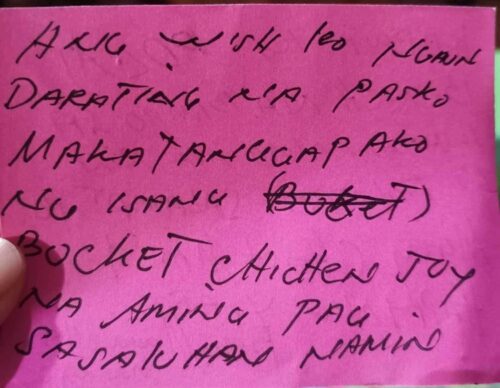 ANG WISH KO NGAUN
DARATING NA PASKO
MAKATANGGAP AKO
NG ISANG (BUKET)
BUCKET CHICHEN JOY
NA AMING PAG
SASALUHAN NAMIN